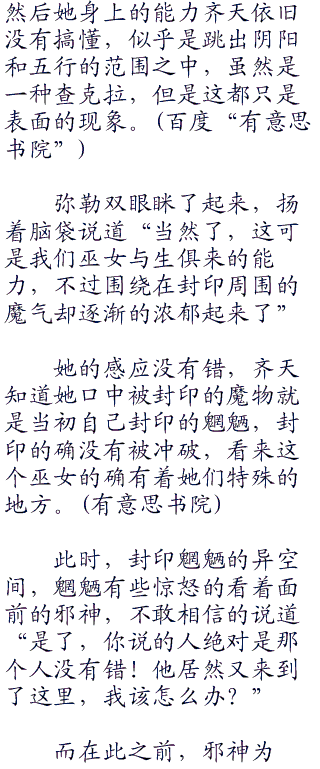 然后她身上的能力齐天依旧
没有搞懂，似乎是跳出阴阳
和五行的范围之中，虽然是
一种查克拉，但是这都只是
表面的现象。(百度“有意思
书院”)
弥勒双眼眯了起来，扬
着脑袋说道“当然了，这可
是我们巫女与生俱来的能
力，不过围绕在封印周围的
魔气却逐渐的浓郁起来了”
她的感应没有错，齐天
知道她口中被封印的魔物就
是当初自己封印的魍魉，封
印的确没有被冲破，看来这
个巫女的确有着她们特殊的
地方。(有意思书院)
此时，封印魍魉的异空
间，魍魉有些惊怒的看着面
前的邪神，不敢相信的说道
“是了，你说的人绝对是那
个人没有错！他居然又来到
了这里，我该怎么办？”
而在此之前，邪神为